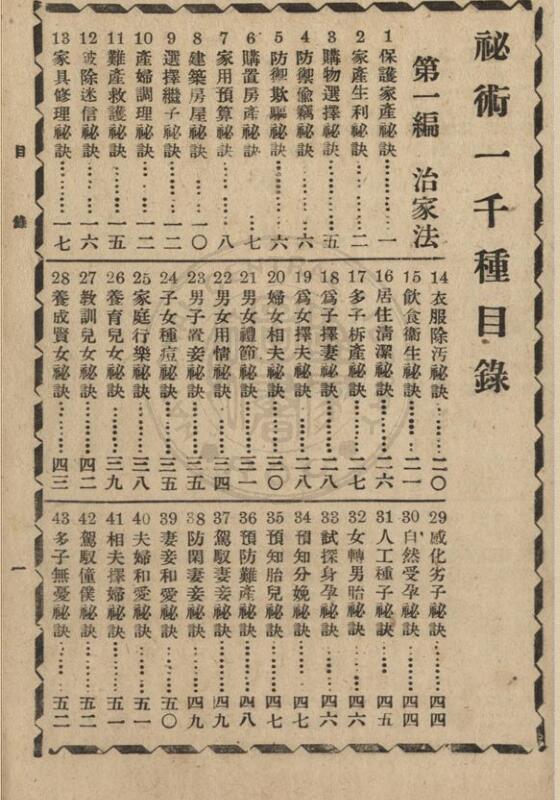 祕術一千種目錄
第一編 治家法
1 保護家產祕訣…………一
2 家產生利祕訣…………二
3 購物選擇祕訣…………五
4 防禦偷竊祕訣…………六
5 防禦欺騙祕訣…………六
6 購置房產祕訣…………七
7 家用預算祕訣…………八
8 建築房屋祕訣…………一〇
9 選擇繼子祕訣…………一二
10 產婦調理祕訣…………一二
11 難產救護祕訣…………一五
12 破除迷信祕訣…………一六
13 家具修理祕訣…………一七
14 衣服除污祕訣…………二〇
15 飲食衛生祕訣…………二一
16 居住清潔祕訣…………二六
17 多子析產祕訣…………二七
18 爲子擇妻祕訣…………二八
19 爲女擇夫祕訣…………二八
20 婦女相夫祕訣…………三〇
21 男女禮節祕訣…………三一
22 男女用情祕訣…………三四
23 男子置妾祕訣…………三五
24 子女種痘祕訣…………三五
25 家庭行樂祕訣…………三八
26 養育兒女祕訣…………三九
27 教訓兒女祕訣…………四二
28 養成賢女祕訣…………四三
29 感化劣子祕訣…………四四
30 自然受孕祕訣…………四四
31 人工種子祕訣…………四五
32 女轉男胎祕訣…………四六
33 試探身孕祕訣…………四六
34 預知分娩祕訣…………四七
35 預知胎兒祕訣…………四七
36 預防難產祕訣…………四八
37 駕馭妻妾祕訣…………四九
38 防閑妻妾祕訣…………四九
39 妻妾和愛祕訣…………五〇
40 夫婦和愛祕訣…………五一
41 相夫擇婦祕訣…………五一
42 駕馭僮僕祕訣…………五二
43 多子無憂祕訣…………五二
目錄
一